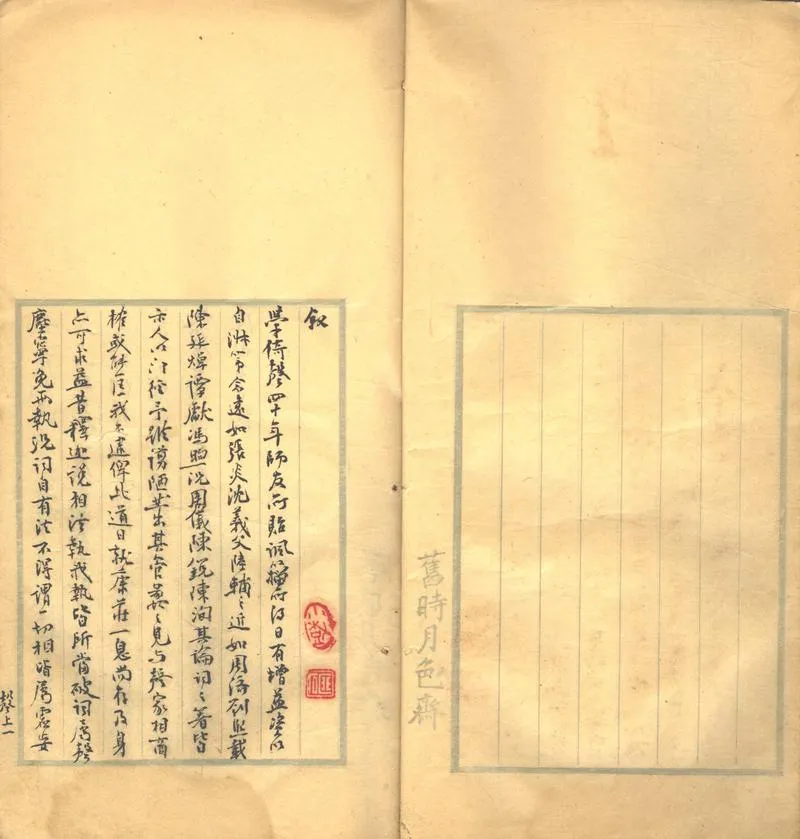 舊時月色齋
敘
學倚聲四十年師友所貽諷籀所得日有增益資以
自淑常念遠如張炎沈義父陸輔之近如周濟劉熙載
陳廷焯譚獻馮煦況周儀陳銳陳洵其論詞之著皆
示人以門徑予雖譾陋其出其管蠡之見與聲家相商
榷或能匡我不逮俾此道日就康莊一息尚存及身
亦可求益昔釋迦說相法執我執皆所當破詞為聲
塵寧免兩執況詞自有法不得謂一切相皆屬虛妄
聲上一